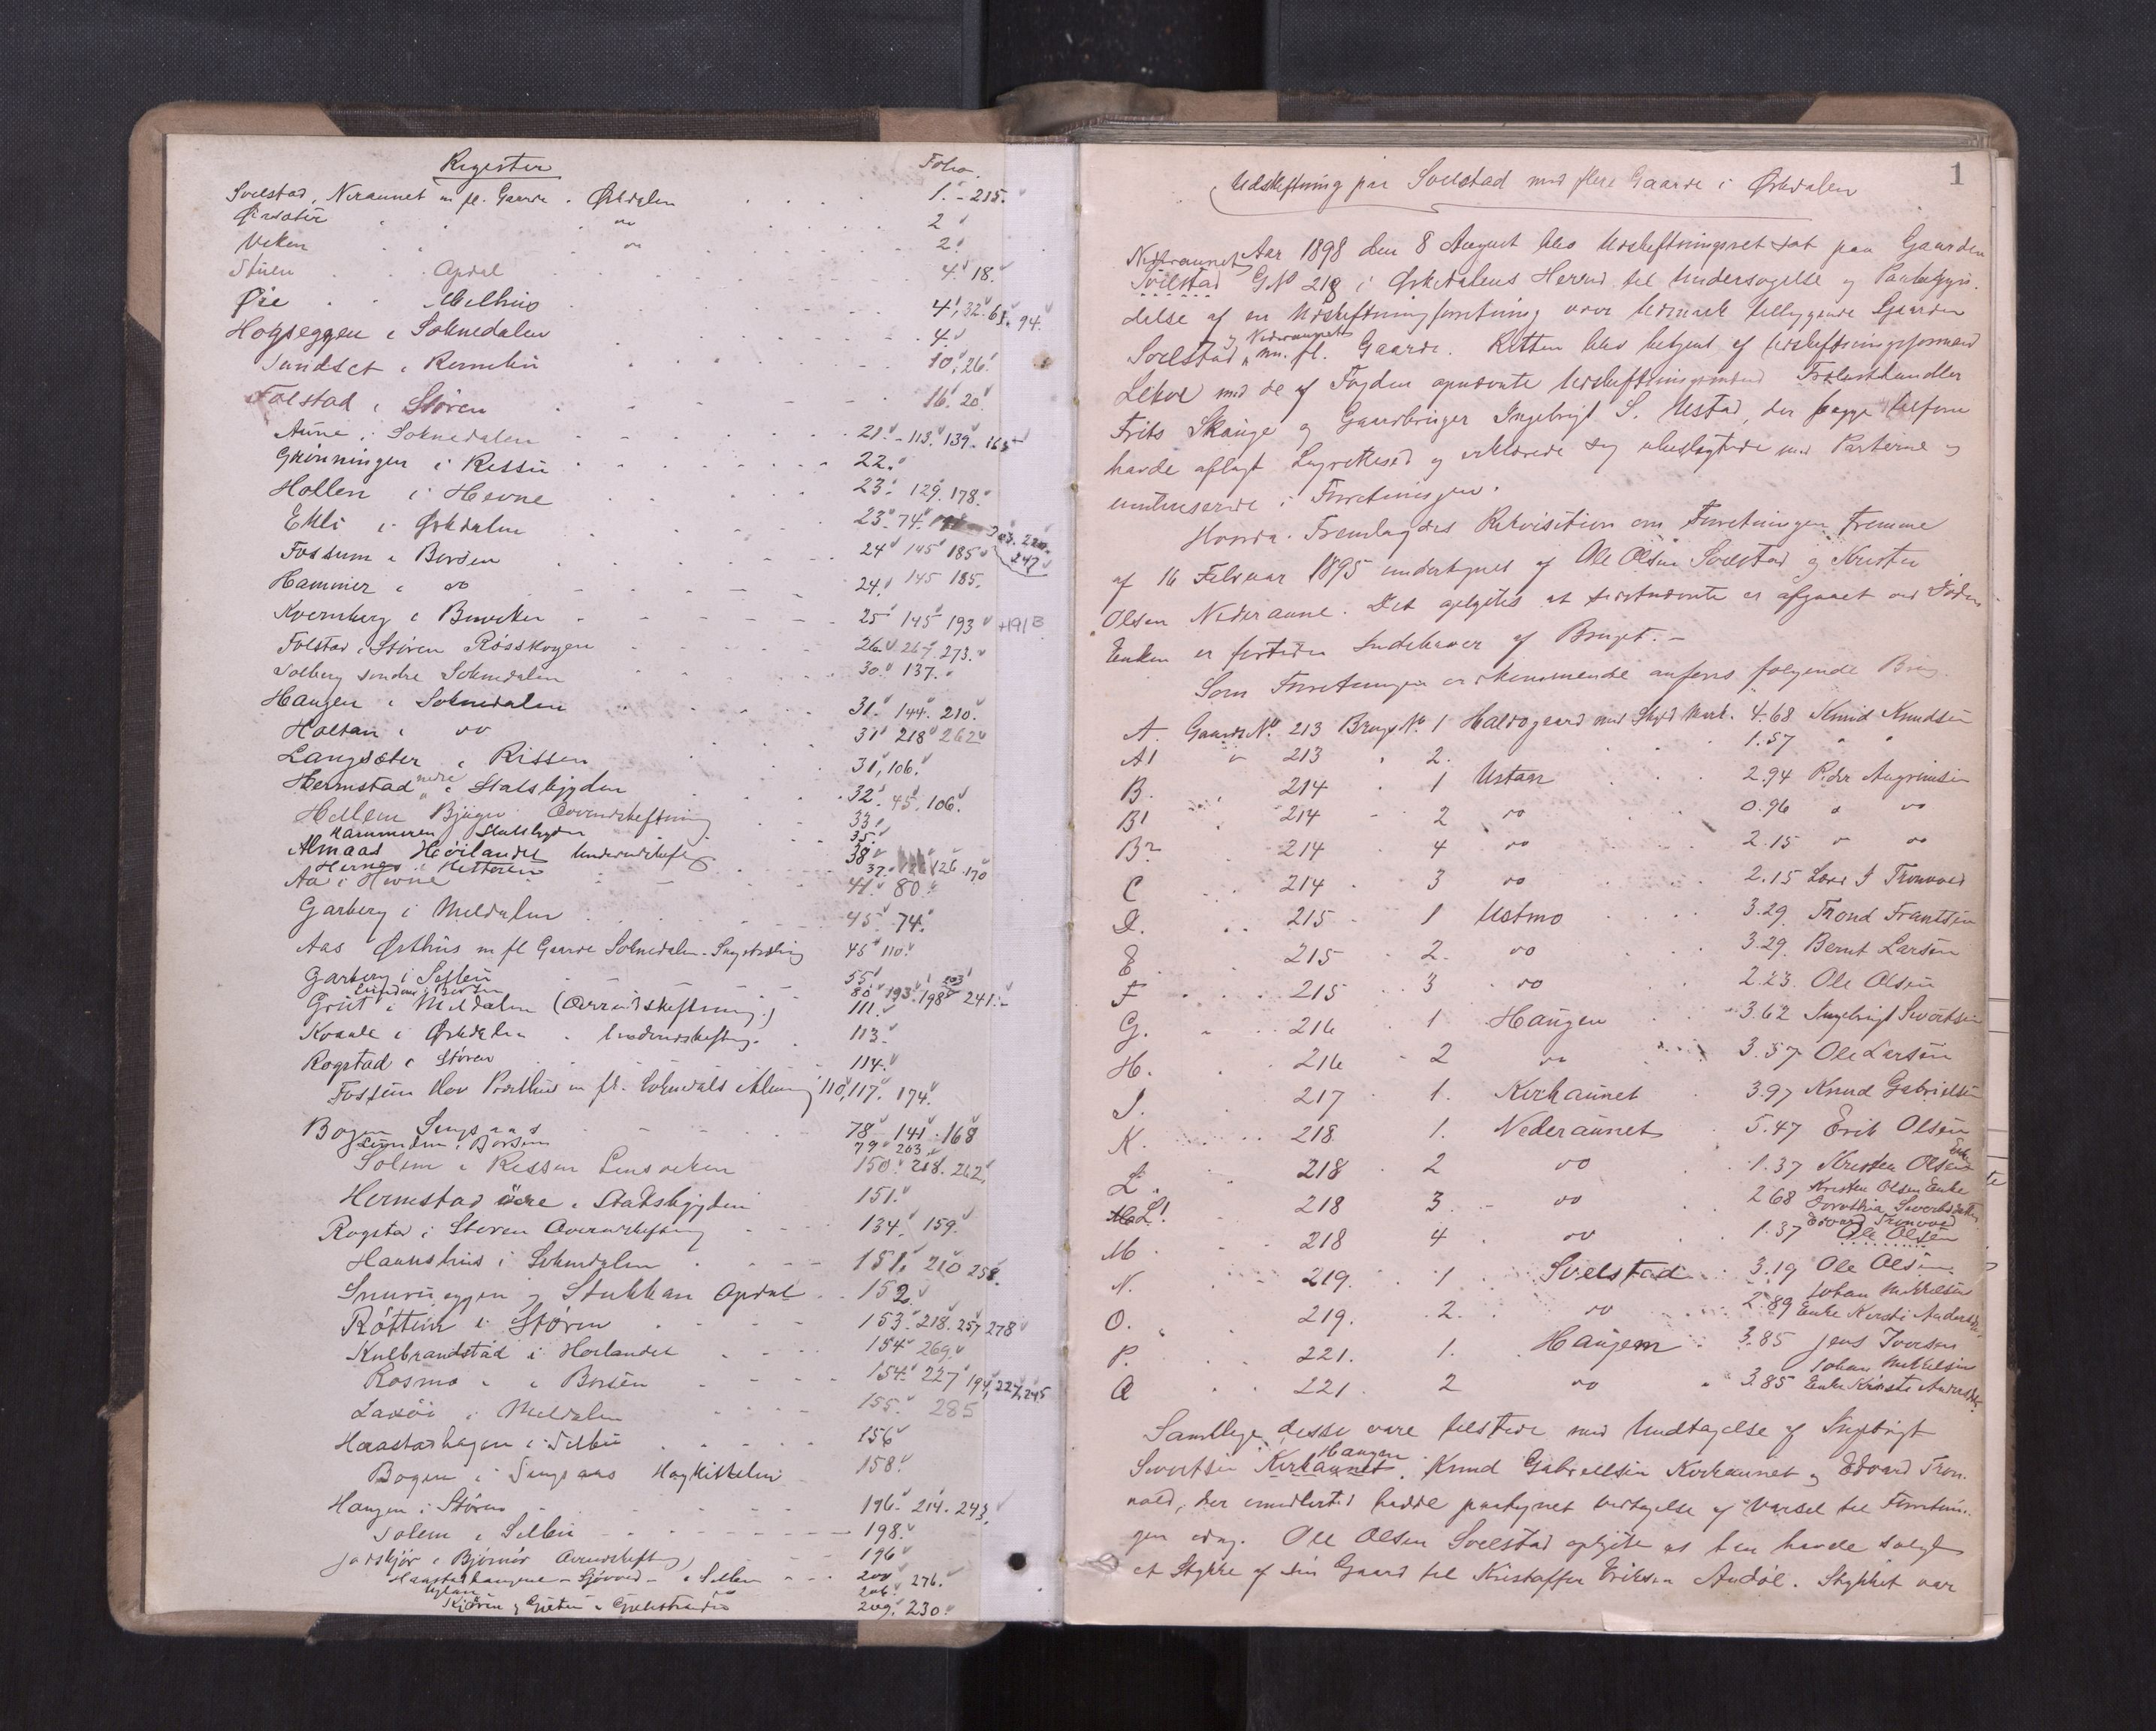 Register Folio.
Soelstad, Neraunet m fl. Gaarde i Ørkedalen 1. - 215.
Ørsæter " " 2
Viken " 2.
Stuen Opdal 4. 18.
Øie Melhus 4, 32. 61. 94.
Hogseggen i Soknedalen 4.
Sundset i Rennebu 10, 26.
Folstad i Støren 16. 20.
Aune i Soknedalen 21. - 113. 139. 165
Grønningen i Rissen 22.
Hollen i Hevne 23. 129. 178.
Ekli i Ørkedalen 23. 74. 203. 220. 247
Fossum i Børsen 24 145 185
Hammer i do 24. 145 185.
Kvernberg i Buviken 25 145 193 +191 B
Folstad i Støren Rosskogen 26. 267. 273.
Solberg søndre Soknedalen 30. 137.
Haugen i Soknedalen 31. 144. 210.
Holtan i do 31 218 262
Langsæter i Rissen 31, 106.
Hermstad nedre i Stadsbygden 32. 45. 106.
Hellem Bjugn Overudskiftning 33
Hammeren Stadsbygden 35.
Almaas Høilandet Underudskiftg 38
Hernes i Hitteren 37. 126. 170
Aa i Hevne 41. 80.
Garberg i Meldalen 45. 74.
Aas Østhus m fl Gaarde Soknedalen - 45 110.
Garberg i Selbu 55.
80 193. 198 203 241.
Grut i Meldalen (Overudskiftning.) 111.
Kvaale i Ørkedalen Underudskiftng. 113.
Rogstad i Støren 114.
Fossum Hov Presthus m fl. 110, 117. 174.
Bogen Singsaas 78 141. 168
i Børsen 79 203
Solem i Rissen Lensviken 150. 218. 262.
Hermstad øvre i Stadsbygden 151.
Rogstad i Støren Overudskiftning 134. 159.
Haukshus i Soknedalen 151. 210 258.
Snurueggen og Stukkan Opdal 152.
Røttum i Støren 153. 218. 257 278
Kulbrandstad i Hølandet 154 269.
Rosmo i Børsen 154. 227 194, 227, 245
Laxøi i Meldalen 155. 285
Haarstadhagen i Selbu 156
Bogen i Singsaas Haukittelen 158.
Haugen i Støren 196. 214. 243.
Solem i Selbu 198.
Jøssund i Bjørnør Overudskiftng 196
Haarstadhaugene - i Selbu 200
Uglan do 206. 276.
209. 230.
1
Udskiftning paa Soelstad med flere Gaarde i Ørkedalen
Nederaunet Aar 1898 den 8 August blev Udskiftningsret sat paa Gaarden
Soelstad GNo 218 i Ørkedalens Herred til Undersøgelse og Paabegyn-
delse af en Udskiftningsforretning over Udmark tilliggende Gaarden
Soelstad og Nederaunet m. fl. Gaarde. Retten blev betjent af Udskiftningsformand
Lehne med de af Fogden opnævnte Udskiftningsmænd Trælasthandler
Frits Skauge og Gaardbruger Ingebrigt S. Ustad, der begge
havde aflagt Lagrettesed og erklærede sig ubeslægtede med Parterne og
uinteresserede i Forretningen.
Hvorda. Fremlagdes Rekvisition om Forretningens Fremme
af 16 Februar 1895 undertegnet af Ole Olsen Soelstad og Kristen
Olsen Nederaune. Det oplystes at sidstnævnte er afgaaet ved Døden
Enken er fortiden Indehaver af Bruget. -
Som Forretningen vedkommende anføres følgende Brug
A. Gaards No. 213 Brugs No. 1 Haldogaard med Skyld Mark. 4.68 Knud Knudsen
A1 " 213 . 2. 1.57 " "
B. 214 1 Ustan 2.94 Peder Angrimsen
B1 214 2 do 0.96 " do
B2 214 4 do 2.15 " do
C 214 3 do 2.15 Lars J Tronvold
D. 215 1 Ustmo 3.29 Trond Frantsen
E 215 2. do 3.29. Bernt Larsen
F 215 3 do 2.23. Ole Olsen
G. 216 1 Haugen 3.62 Ingebrigt Sivertsen
H. 216 2 do 3.57 Ole Larsen
J. 217 1. Kirkaunet 3.97 Knud Gabrielsen
K. 218 1. Nederaunet 5.47 Erik Olsen
L. 218 2 do 1.37 Kristen Olsens Enke
L1. 218 3 do 2.68 Kristen Olsen Enke Dorothea Sivertsdatter
M. 218 4 do 1.37 Edvard Tronvold Ole Olsen
N. 219. 1 Soelstad 3.19 Ole Olsen
O. 219. 2. do 2.89 Johan Mikkelsen Enke Kirsti Andersdtr
P. 221. 1. Haugen 3.85 Jens Iversen
Q 221. 2 do 3.85 Johan Mikkelsen Enke Kirsti Andersdtr.
Samtlige disse vare tilstede med Undtagelse af Ingebrigt
Sivertsen Kirkaunet Haugen, Knud Gabrielsen Kirkaunet og Edvard Tron-
vold, der imidlertid hadde paategnet vedtagelse af Varsel til Forretnin-
gen idag. Ole Olsen Soelstad oplyste at han havde solgt
et Stykke af sin Gaard til Kristoffer Eriksen Andøl. Stykket var